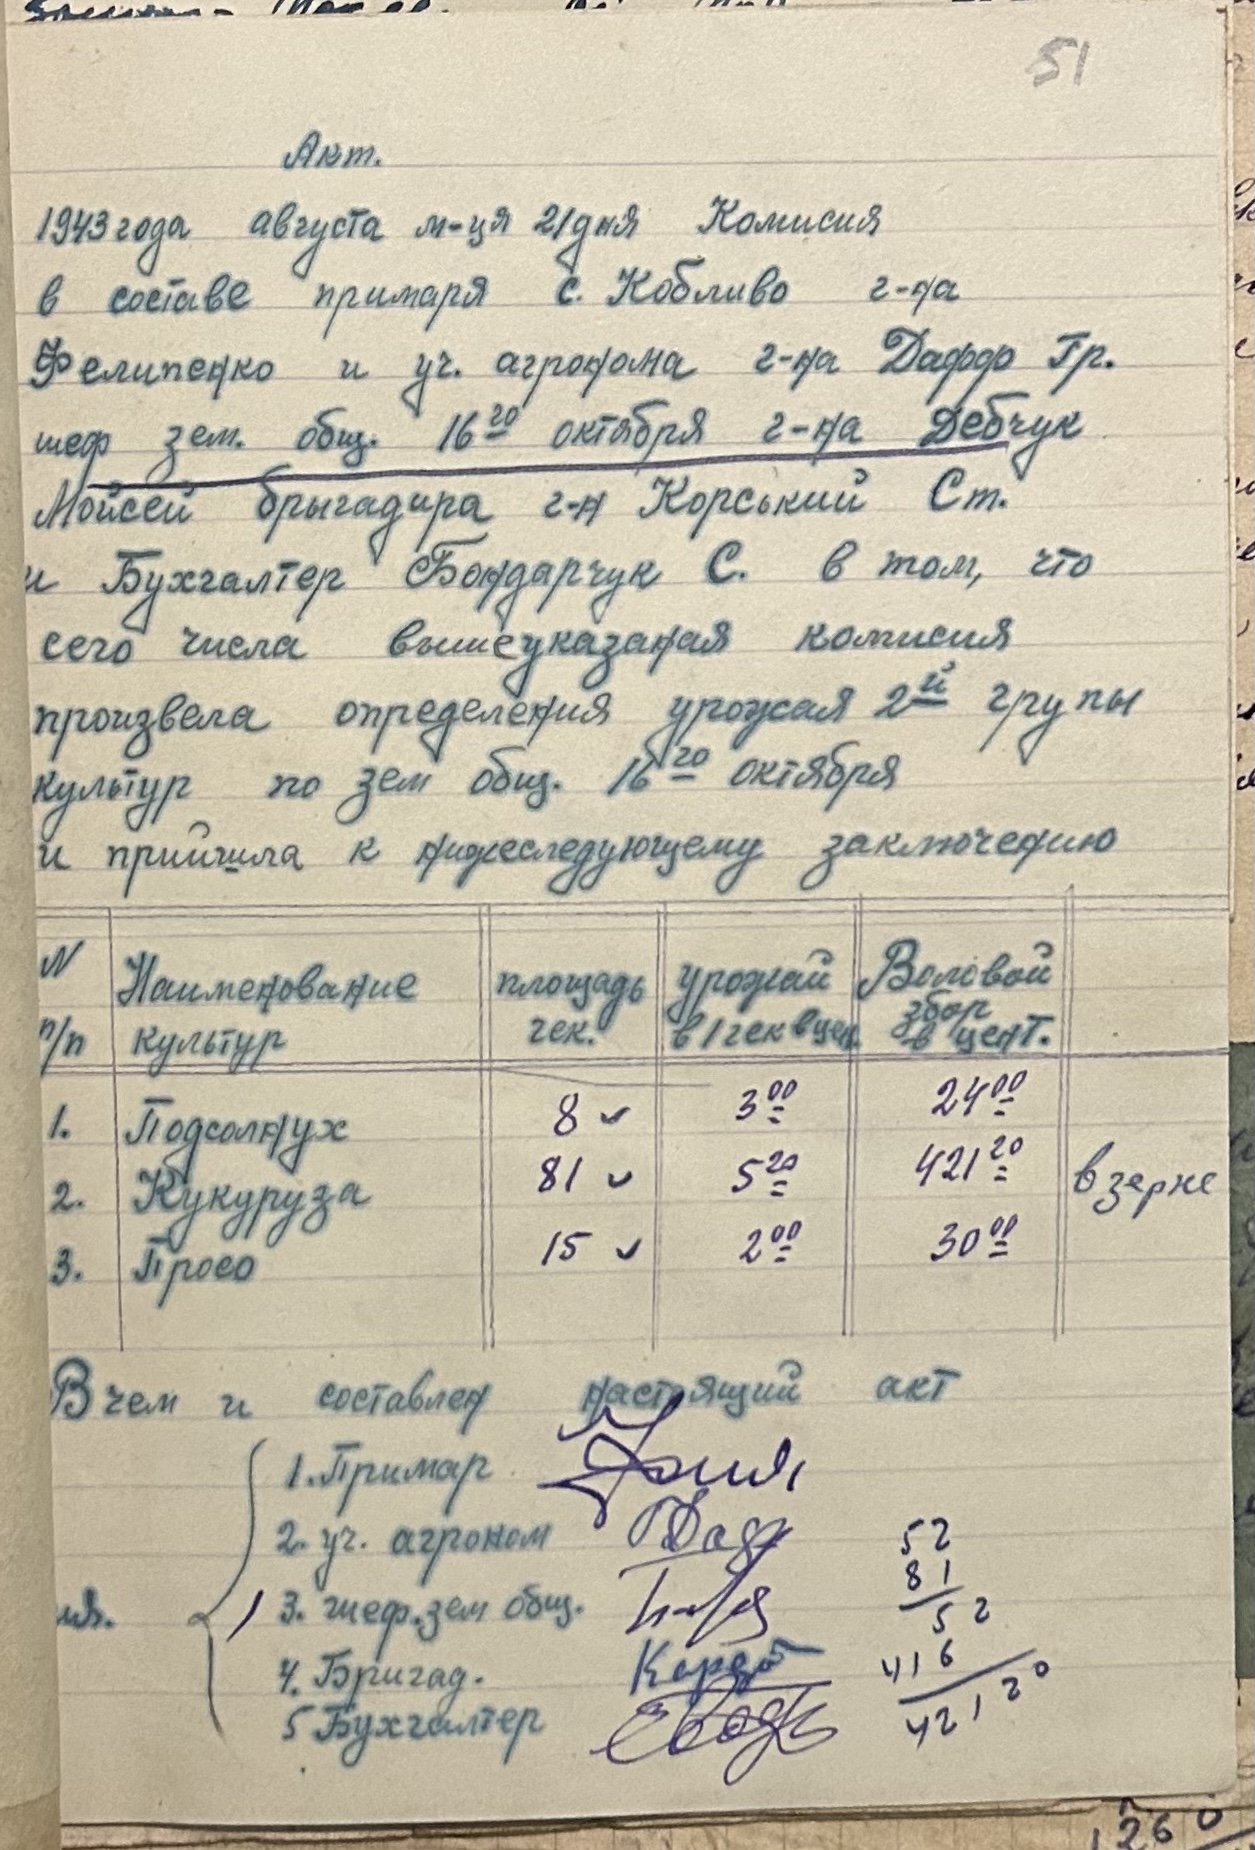 51
Акт.
1943 года августа м-ця 21 дня Комисия
в составе примаря с. Кобливо г-на
Фелипенко и уч. агронома г-на Дафф Гр.
шеф зем. общ. 16го октября г-на Дебчук
Мойсей брыгадира г-н Корський Ст.
и Бухгалтер Бондарчук С. в том, что
сего числа вышеуказаная комисия
произвела определения урожая 2й групы
культур по зем общ. 16го октября
и прийшла к нижеследующему заключению
N п/п Наименование культур площадь гек. урожай в 1 гек в цен. Воловой збор в цент.
1. Подсолнух 8 ✓ 3 00 24 00
2. Кукуруза 81 ✓ 5 20 421 20 в зерне
3. Просо 15 ✓ 2 00 30 00
В чем и составлен настоящий акт
1. Примар
2. уч. агроном 52
81
3. шеф. зем общ. 52
4. Бригад. 416
5 Бухгалтер 42120
1260